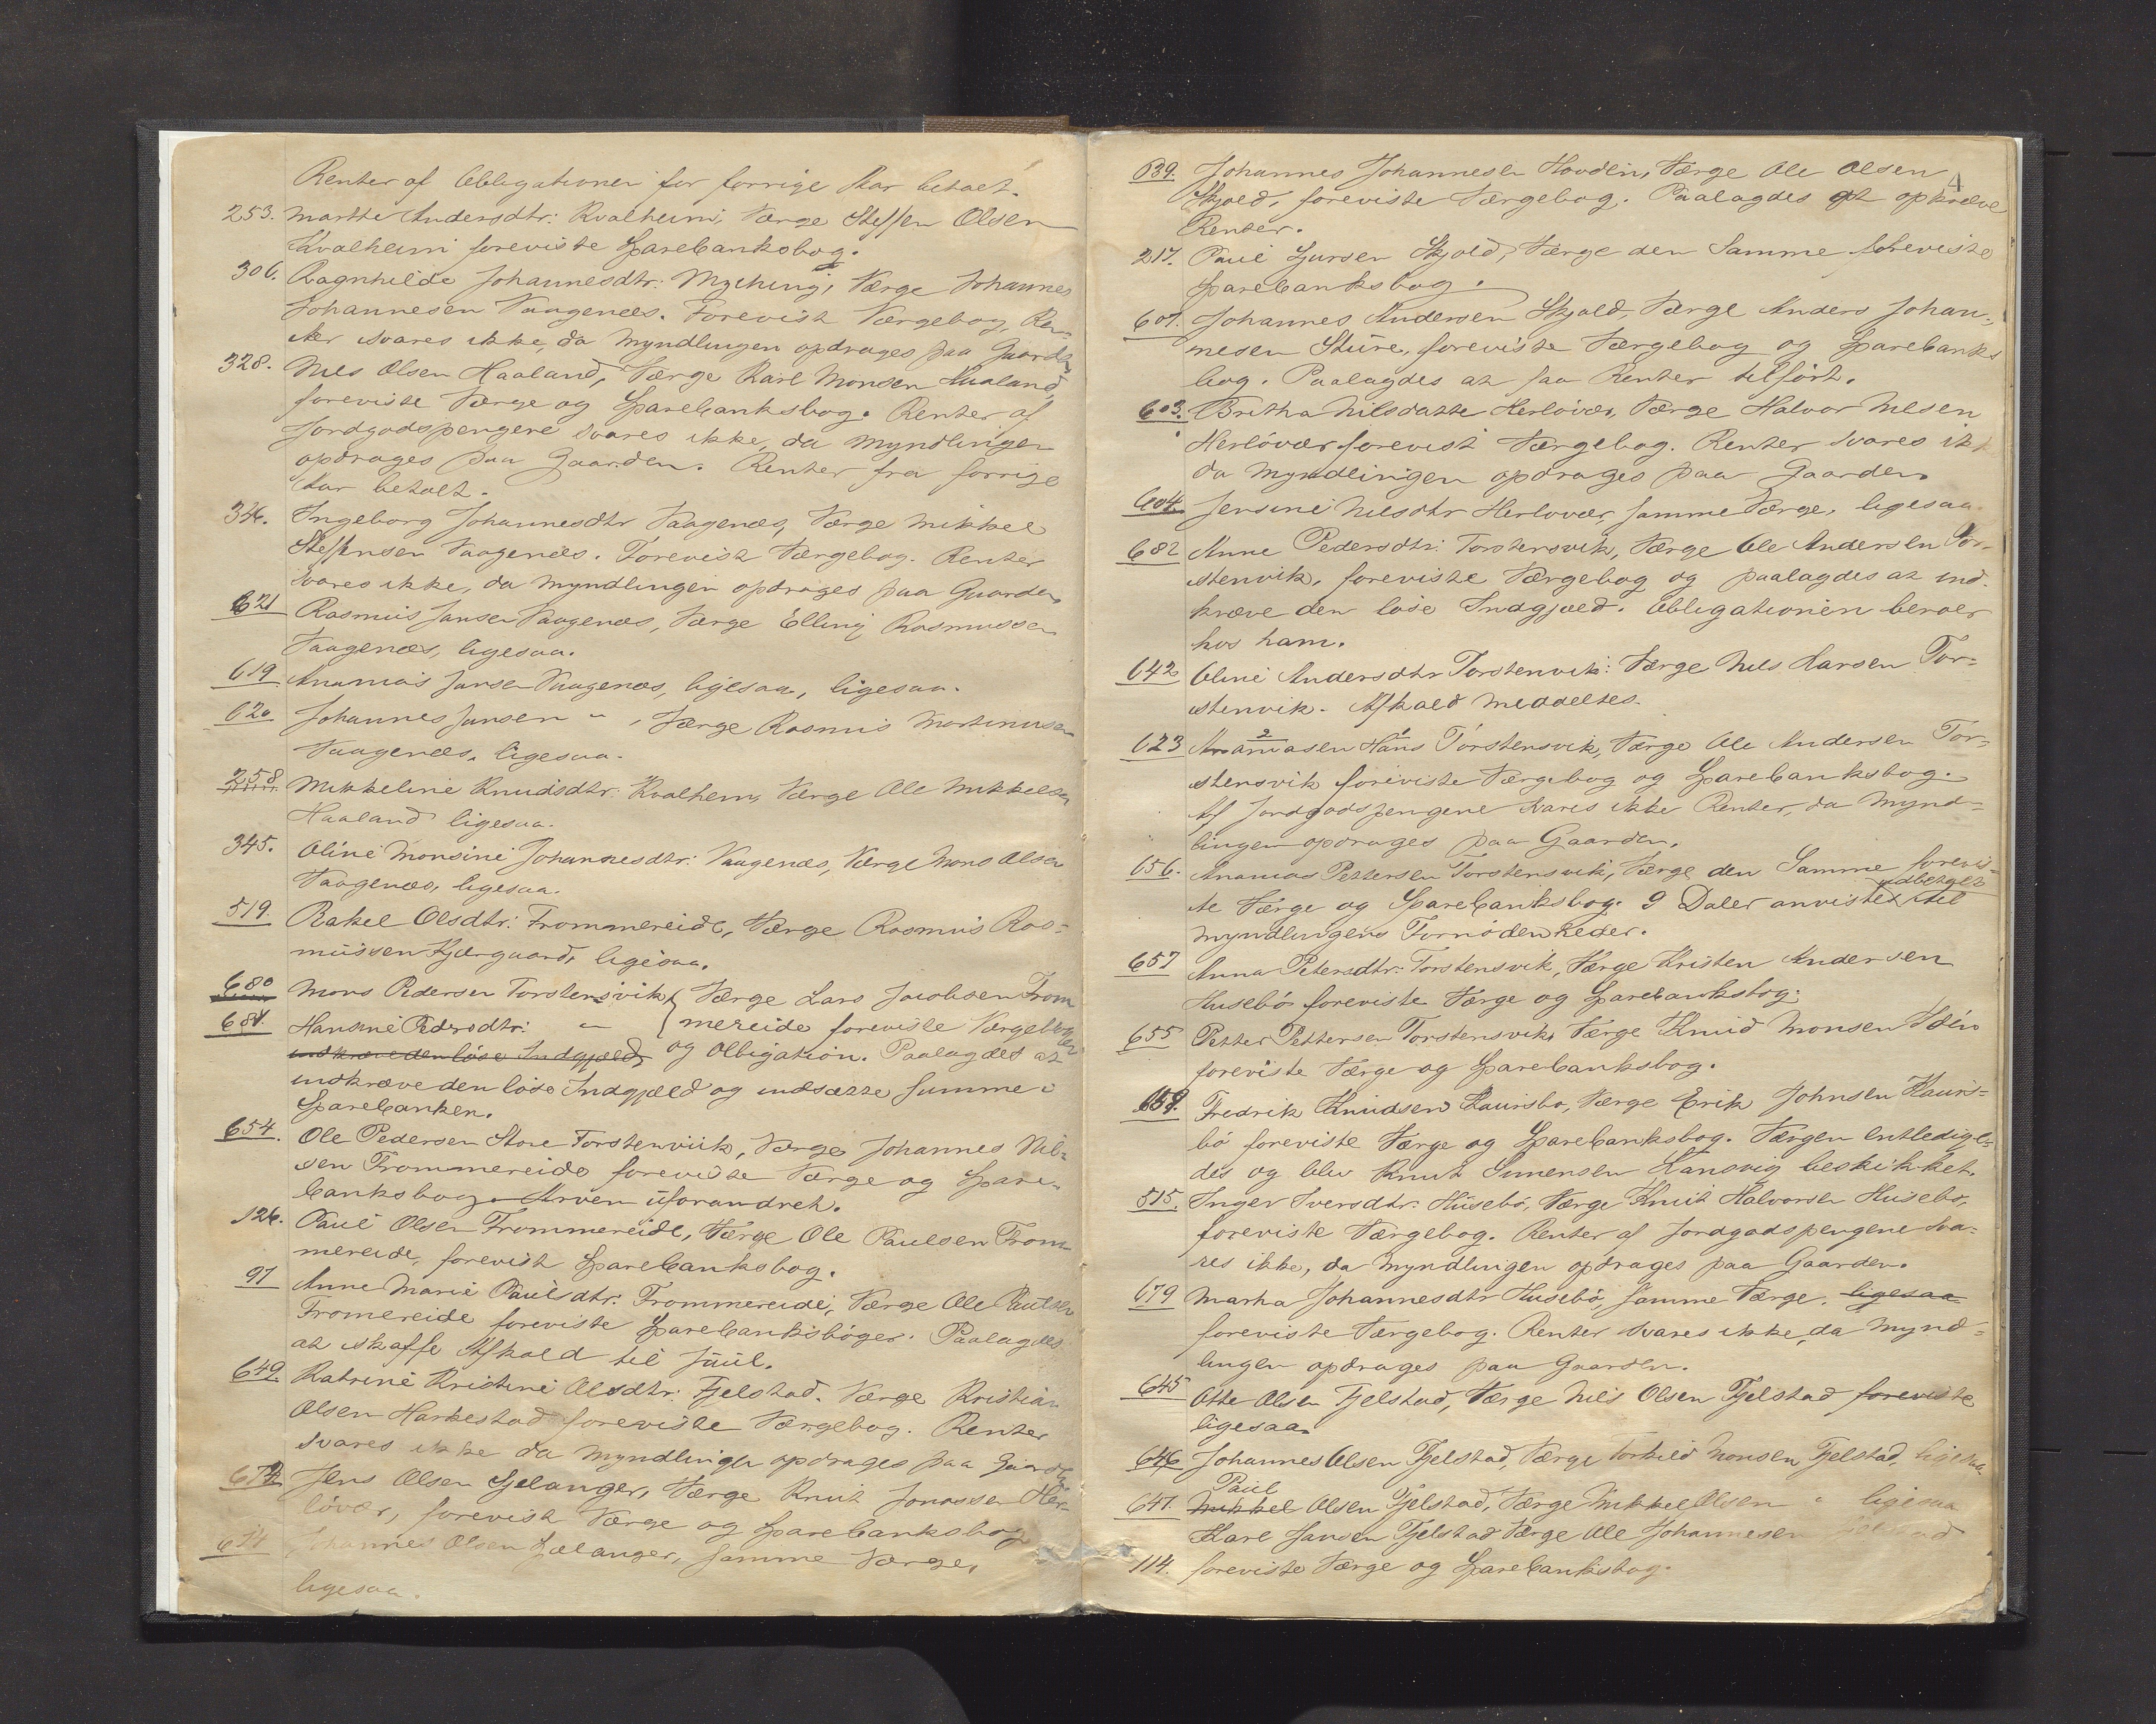 Renter af Obligationen for forrige Aar betalt.
253. Marthe Andersdtr: Kvalheim, Værge Steffen Olsen
Kvalheim foreviste Sparebanksbog.
306. Ragnhilde Johannesdtr: Myching, Værge Johannes
Johannesen Vaagenæs. Forevist Værgebog, Ren-
ter svares ikke, da Myndlingen opdrages paa Gaarden
328. Nils Olsen Haaland, Værge Karl Monsen Haaland,
foreviste Værge og Sparebanksbog. Renter af
Jordgodspengene svares ikke, da Myndlingen
opdrages paa Gaarden. Renter fra forrige
Aar betalt.
346. Ingeborg Johannesdtr Vaagenæs, Værge Mikkel
Steffensen Vaagenæs. Forevist Værgebog. Renter
svares ikke, da Myndlingen opdrages paa Gaarden
621 Rasmus Jansen Vaagenæs, Værge Elling Rasmussen
Vaagenæs, ligesaa.
619 Ananias Jansen Vaagenæs, ligesaa, ligesaa.
620 Johannes Jansen " , Værge Rasmus Martinusen
Vaagenæs, ligesaa.
258 Mikkeline Knudsdtr: Kvalheim, Værge Ole Mikkelsen
Haaland ligesaa.
345. Oline Monsine Johannesdtr: Vaagenæs, Værge Mons Olsen
Vaagenæs, ligesaa.
519. Rakel Olsdtr: Frommereide, Værge Rasmus Ras-
mussen Kjærgaard, ligesaa.
680 Mons Pedersen Torstensvik, { Værge Lars Jacobsen From
681. Hansine Pedersdtr: " { mereide foreviste Værgebøger
indkræve den løse Indgjæld, og Obligation. Paalagdes at
indkræve den løse Indgjæld og indsætte Summe i
Sparebanken.
654. Ole Pedersen Store Torstenviik, Værge Johannes Nil-
sen Frommereide foreviste Værge og Spare-
banksbog. Arven uforandret.
126. Paul Olsen Frommereide, Værge Ole Paulsen From-
mereide, forevist Sparebanksbog.
97 Anne Marie Paulsdtr: Frommereide, Værge Ole Paulsen
Fromereide foreviste Sparebanksbøger. Paalagdes
at skaffe Afkald til Juul.
649. Katrine Kristine Olsdtr: Fjelstad. Værge Kristian
Olsen Harkestad foreviste Værgebog. Renter
svares ikke da Myndlingen opdrages paa Gaarden
672 Jens Olsen Sjelanger, Værge Knut Jonassen Her-
løvær, forevist Værge og Sparebanksbog
674 Johannes Olsen Sælanger, samme Værge,
ligesaa.
4
639. Johannes Johannesen Hovden, Værge Ole Olsen
Skjold, foreviste Værgebog. Paalagdes at opkræve
Renter.
217. Paul Gursen Skjold, Værge den Samme foreviste
Sparebanksbog.
607. Johannes Andersen Skjold, Værge Anders Johan-
nesen Sture, foreviste Værgebog og Sparebanks
bog. Paalagdes at faa Renter tilført.
603. Britha Nilsdatte Herløvær, Værge Halvor Nilsen
Herløvær forevist Værgebog. Renter svares ikke
da Myndlingen opdrages paa Gaarden.
604. Jensine Nilsdtr Herlovær, samme Værge, ligesaa.
682 Anne Pedersdtr: Torstensvik, Værge Ole Andersen Tor-
stenvik, foreviste Værgebog og paalagdes at ind-
kræve den løse Indgjæld. Obligationen beroer
hos ham.
642 Oline Andersdtr Torstenvik: Værge Nils Hansen Tor-
stenvik. Afkald meddeltes.
623 Ananiasen Hans Torstensvik, Værge Ole Andersen Tor-
stensvik foreviste Værgebog og Sparebanksbog.
Af Jordgodspengene svares ikke Renter, da Mynd-
lingen opdrages paa Gaarden.
656. Ananias Pettersen Torstensvik, Værge den Samme forevis-
te Værge og Sparebanksbog. 9 Daler anvistes udbetalt til
Myndlingens Fornødenheder.
657 Anna Petersdtr: Torstensvik, Værge Kristen Andersen
Husebø foreviste Værge og Sparebanksbog.
655 Petter Pettersen Torstensvik, Værge Knud Monsen
foreviste Værge og Sparebanksbog.
658. Fredrik Knudsen Hauisbø, Værge Erik Johnsen Hauis-
bø foreviste Værge og Sparebanksbog. Værgen entledige-
des og blev Knut Simensen Hansvig beskikket.
515. Inger Iversdtr: Husebø, Værge Knut Halvorsen Husebø,
foreviste Værgebog. Renter af Jordgodspengene sva-
res ikke, da Myndlingen opdrages paa Gaarden.
679 Marha Johannesdtr Husebø, samme Værge. ligesaa
foreviste Værgebog. Renter svares ikke, da Mynd-
lingen opdrages paa Gaarden.
645 Otte Olsen Fjelstad, Værge Nils Olsen Fjelstad foreviste
ligesaa
646 Johannes Olsen Fjelstad, Værge Torkild Monsen Fjelstad, ligesaa
Paul
647. Mikkel Olsen Fjelstad, Værge Mikkel Olsen " ligesaa
Karl Jansen Fjelstad Værge Ole Johannesen Fjelstad
114. foreviste Værge og Sparebanksbog.